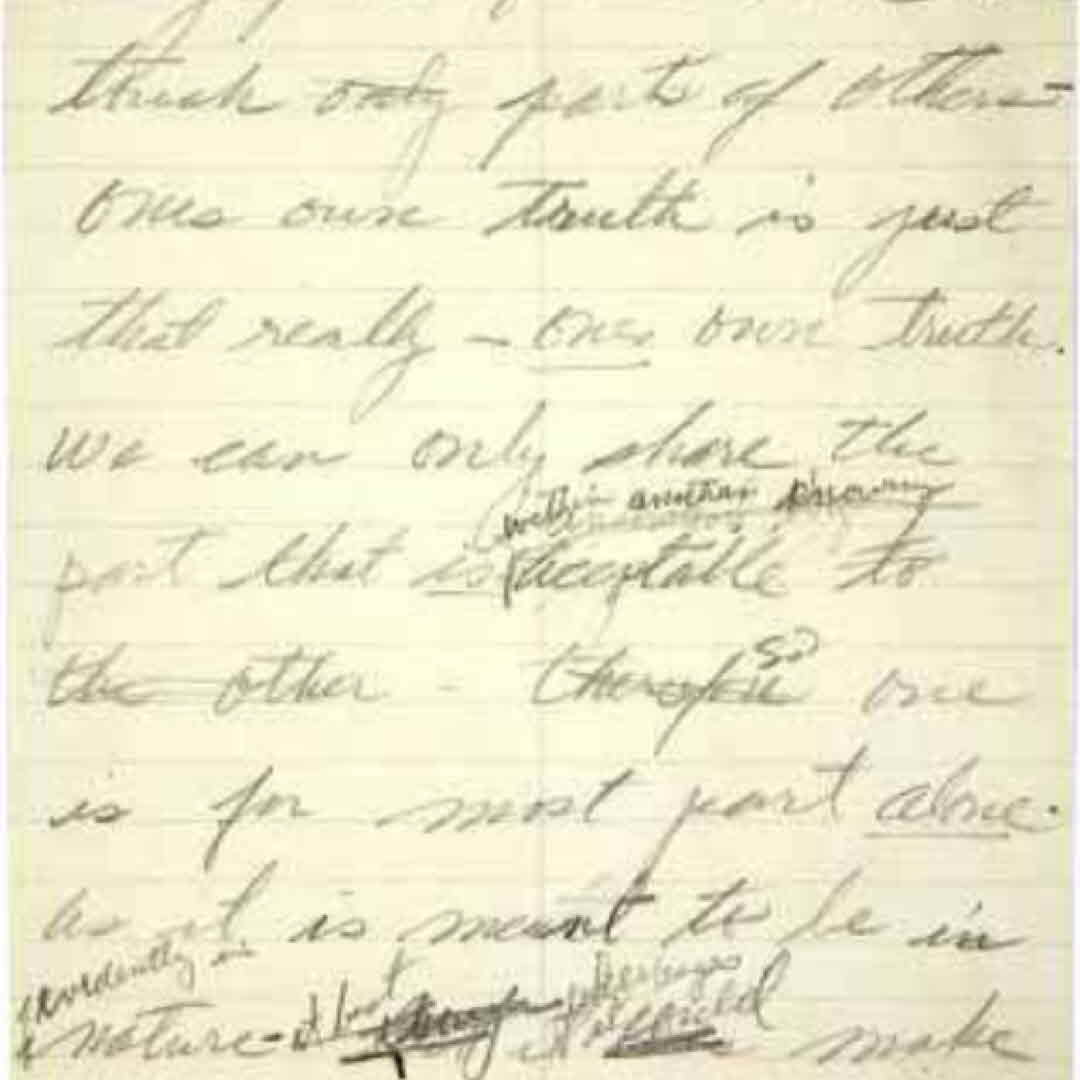 think only parts of others—
Ones own truth is just
that really — ones own truth.
We can only share the
within another's knowing
part that is acceptable to
the other - therefore
so
one
is for most part alone.
as it is meant to be in
evidently in
perhaps
nature - at best
it could make